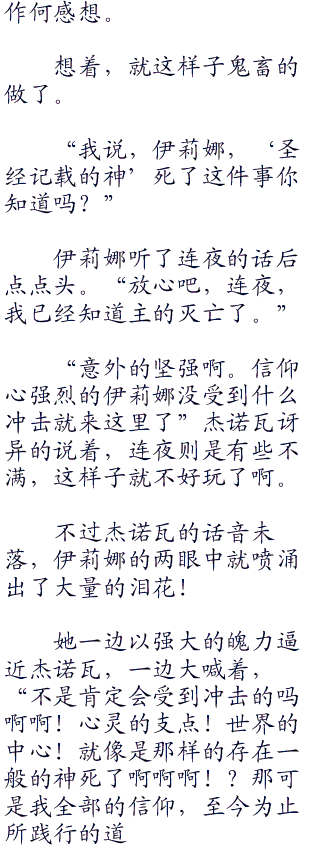 作何感想。
想着，就这样子鬼畜的
做了。
“我说，伊莉娜，‘圣
经记载的神’死了这件事你
知道吗？”
伊莉娜听了连夜的话后
点点头。“放心吧，连夜，
我已经知道主的灭亡了。”
“意外的坚强啊。信仰
心强烈的伊莉娜没受到什么
冲击就来这里了”杰诺瓦讶
异的说着，连夜则是有些不
满，这样子就不好玩了啊。
不过杰诺瓦的话音未
落，伊莉娜的两眼中就喷涌
出了大量的泪花！
她一边以强大的魄力逼
近杰诺瓦，一边大喊着，
“不是肯定会受到冲击的吗
啊啊！心灵的支点！世界的
中心！就像是那样的存在一
般的神死了啊啊啊！？那可
是我全部的信仰，至今为止
所践行的道